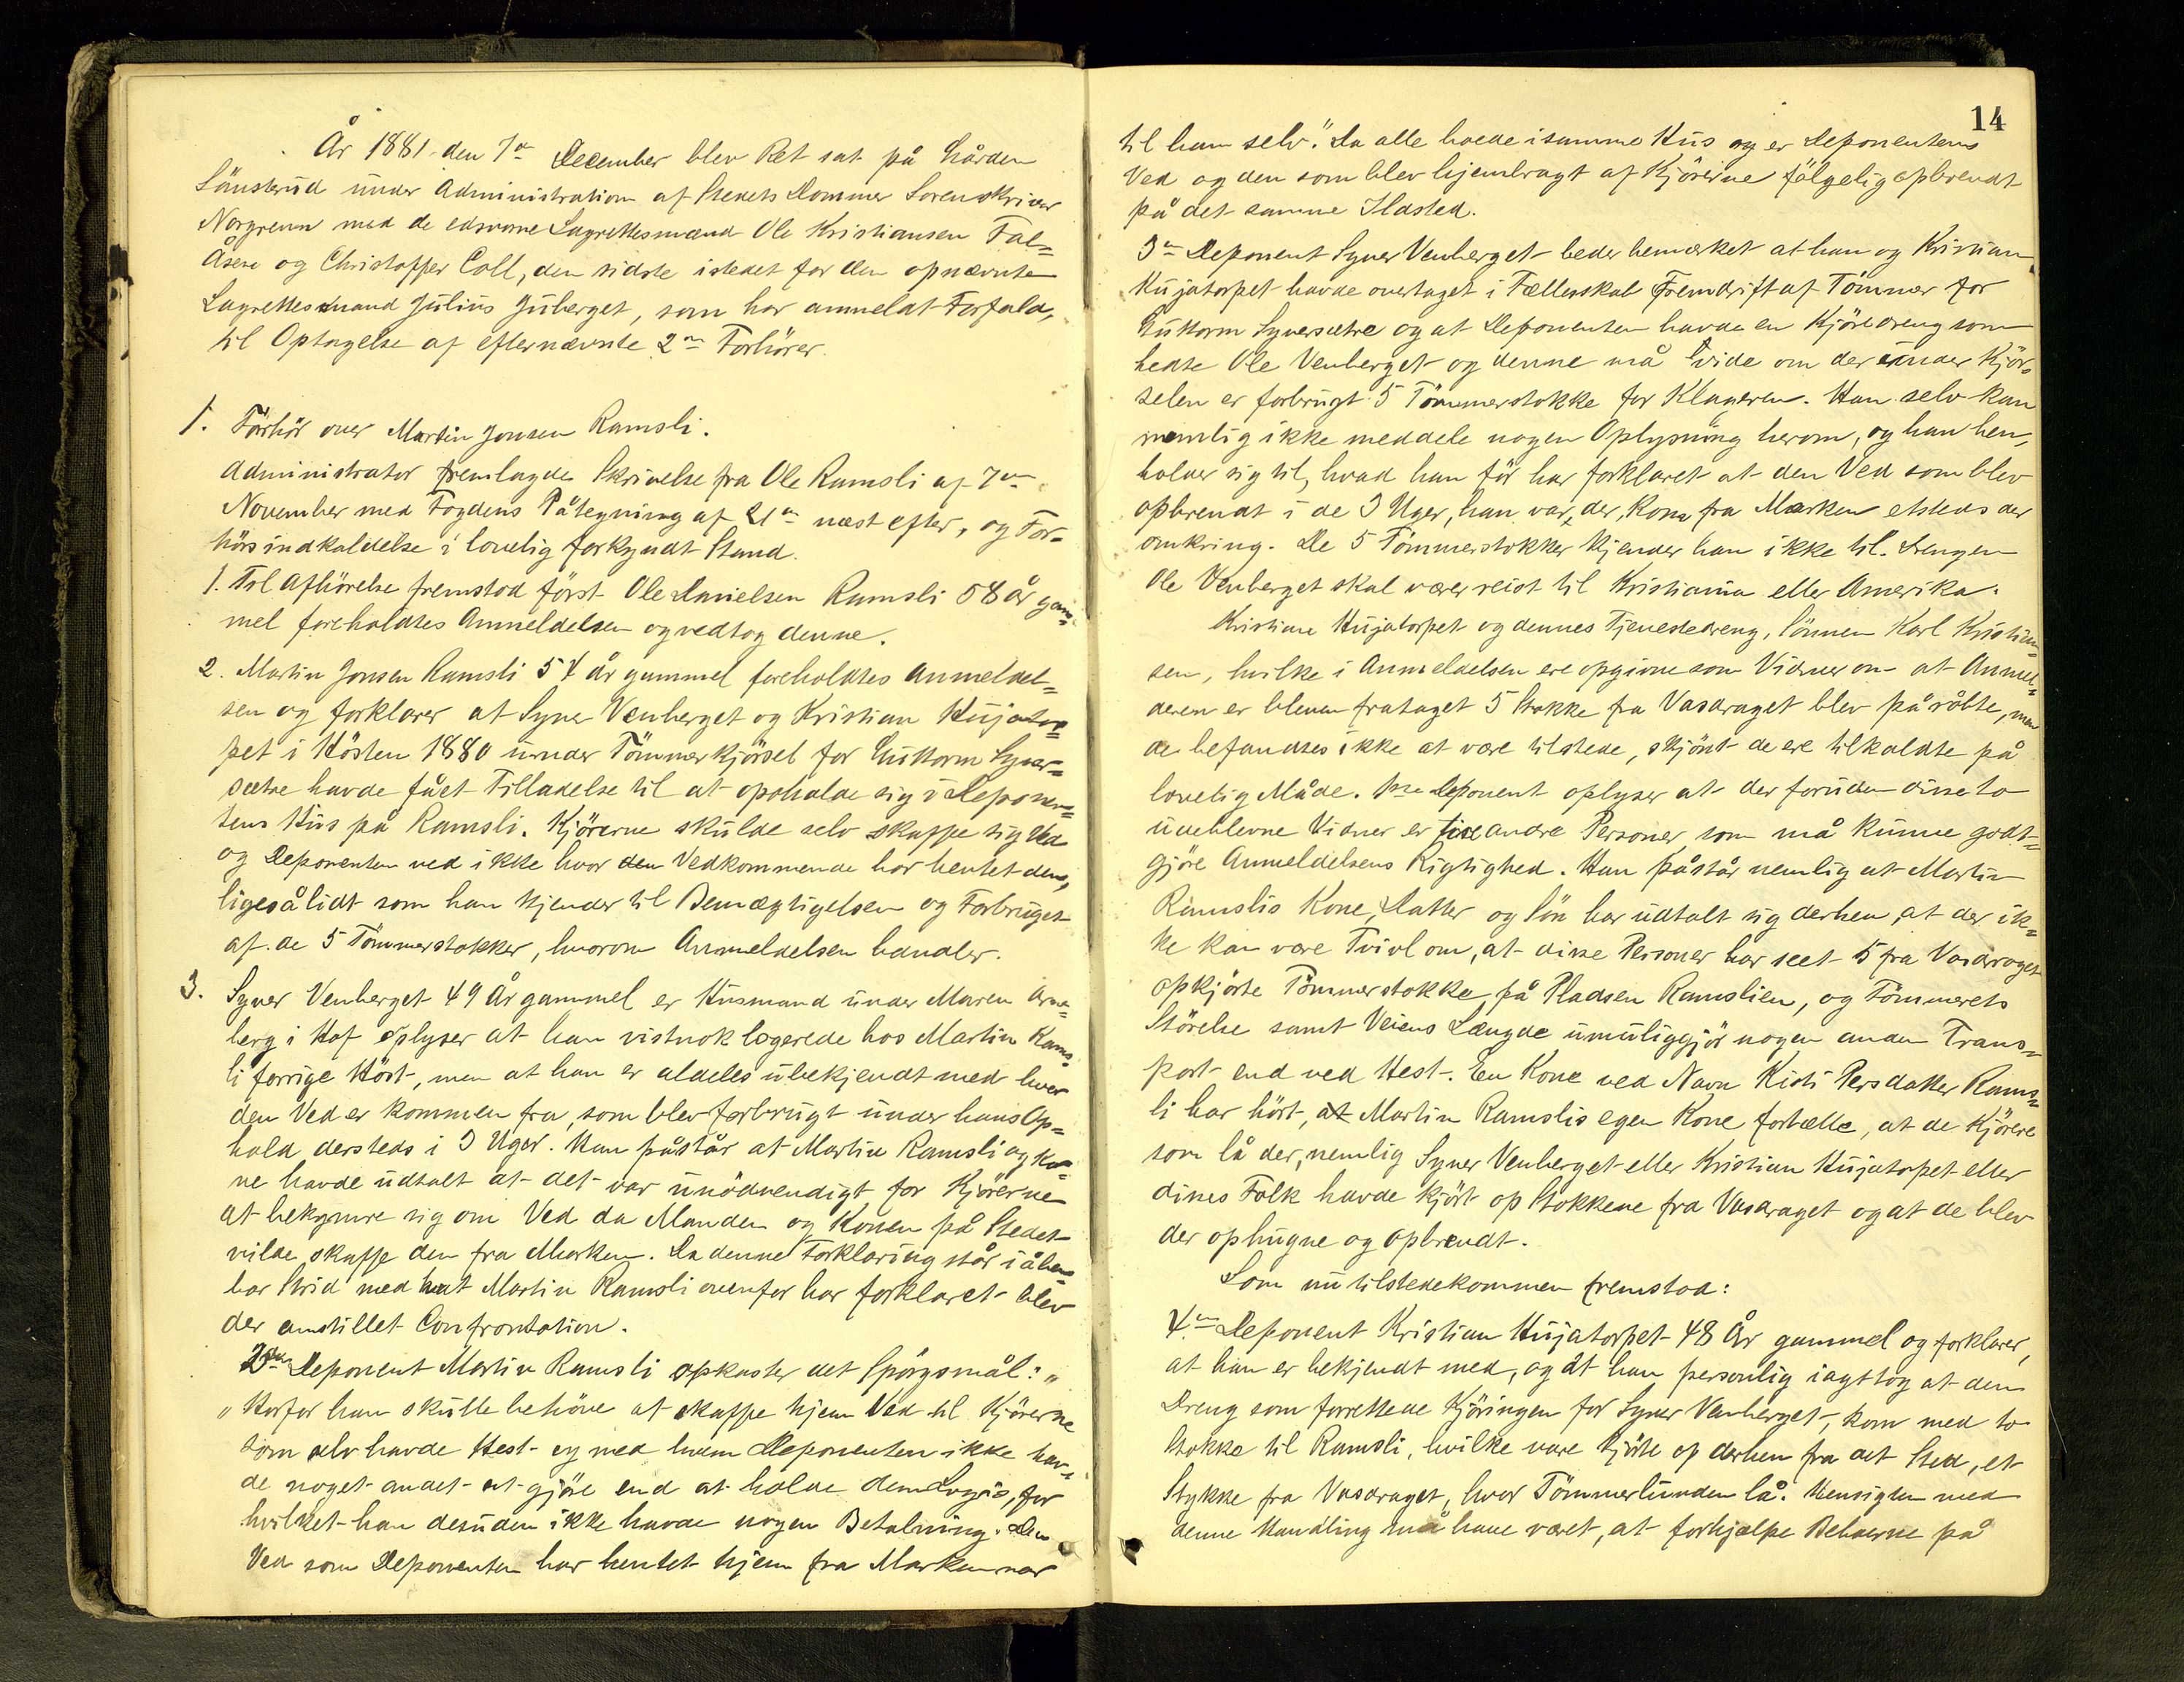 År 1881 den 7de December blev Ret sat på Gården
Sönsterud under Administration af Stedets Dommer Sorenskriver
Norgrenn med de edsvorne Lagrettesmænd Ole Kristiansen Fal=
Åsene og Christoffer Coll, den sidste istedet for den opnævnte
Lagrettesmand Julius Juberget, som har anmeldt Forfald,
til Optagelse af efternævnte 2de Forhörer.
1. Förhör over Martin Jonsen Ramsli.
Administrator fremlagde Skrivelse fra Ole Ramsli af 7de
November med Fogdens Påtegning af 21de næst efter, og For=
hörsindkaldelse i lovlig forkyndt Stand.
1. Til Afhörelse fremstod först Ole Danielsen Ramsli 58 år gam=
mel foreholdtes Anmeldelsen og vedtog denne.
2. Martin Jonsen Ramsli 54 år gammel foreholdtes Anmeldel=
sen og forklarer at Syver Venberget og Kristian Hujator=
pet i Hösten 1880 under Tömmerkjörsel for Guttorm Syver=
sætre havde fået Tilladelse til at opholde sig i Deponen=
tens Hus på Ramsli. Kjörerne skulde selv skaffe sig Ved
og Deponenten ved ikke hvor den Vedkommende har hentet den,
ligesålidt som han kjender til Bemægtigelsen og Forbruget
af de 5 Tömmerstokker, hvorom Anmeldelsen handler.
3. Syver Venberget 49 År gammel er Husmand under Maren Arne=
berg i Hof oplyser at han vistnok logerede hos Martin Rams=
li forrige Höst, men at han er aldeles ubekjendt med hvor
den Ved er kommen fra, som blev forbrugt under hans Op=
hold dersteds i 3 Uger. Han påstår at Martin Ramsli og Ko=
ne havde udtalt at det var unödvendigt for Kjörerne
at bekymre sig om Ved da Manden og Konen på Stedet
vilde skaffe den fra Marken. Da denne Forklaring står i åben=
bar Strid med hvat Martin Ramsli ovenfor har forklaret blev
der anstillet Confrontation.
2den Deponent Martin Ramsli opkaster det Spörgsmål: „
„Hvorfor han skulle behöve at skaffe hjem Ved til Kjörerne
som selv havde Hest og med hvem Deponenten ikke hav=
de noget andet at gjöre end at holde dem Logis, for
hvilket han desuden ikke havde nogen Betalning. Den
Ved som Deponenten har hentet hjem fra Marken var
14
til ham selv." Da alle boede i samme Hus og er Deponentens
Ved og den som blev hjembragt af Kjörerne fölgelig opbrendt
på det samme Ildsted.
3de Deponent Syver Venberget beder bemærket at han og Kristian
Hujatorpet havde overtaget i Fællesskab Fremdrift af Tömmer for
Guttorm Syversætre og at Deponenten havde en Kjöredreng som
hedte Ole Venberget og denne må vide om der under Kjör=
selen er forbrugt 5 Tömmerstokke for Klageren. Han selv kan
nemlig ikke meddele nogen Oplysning herom, og han hen=
holder sig til, hvad han för har forklaret at den Ved som blev
opbrendt i de 3 Uger, han var der, kom fra Marken etsteds der
omkring. De 5 Tömmerstokker kjender han ikke til. Drengen
Ole Venberget skal være reist til Kristiania eller Amerika.
Kristian Hujatorpet og dennes Tjenestedreng, Sönnen Karl Kristian=
sen, hvilke i Anmeldelsen ere opgivne som Vidner om at Anmel=
deren er bleven frataget 5 Stokke fra Vasdraget blev påråbte, men
de befandtes ikke at være tilstede, skjönt de ere tilkaldte på
lovlig Måde. 1ste Deponent oplyser at der foruden disse to
udeblevne Vidner er fire andre Personer som må kunne godt=
gjöre Anmeldelsens Rigtighed. Han påstår nemlig at Martin
Ramslis Kone, Datter og Sön har udtalt sig derhen at der ik=
ke kan være Tvivl om, at disse Personer har seet 5 fra Vasdraget
opkjörte Tömmerstokke på Pladsen Ramslien, og Tömmerets
Störelse samt Veiens Længde umuliggjör nogen anden Trans=
port end ved Hest. En Kone ved Navn Kisti Persdatter Rams=
li har hört, at Martin Ramslis egen Kone fortælle, at de Kjörere
som lå der, nemlig Syver Venberget eller Kristian Hujatorpet eller
disses Folk havde kjört op Stokkene fra Vasdraget og at de blev
der ophugne og opbrendt.
Som nu tilstedekommen fremstod:
4de Deponent Kristian Hujatorpet 48 År gammel og forklarer,
at han er bekjendt med, og åt han personlig iagttog at den
Dreng som forrettede Kjöringen for Syver Venberget, kom med to
Stokke til Ramsli, hvilke vare kjörte op derhen fra det Sted, et
Stykke fra Vasdraget, hvor Tömmerlunden lå. Hensigten med
denne Handling må have været, at forhjælpe Beboerne på